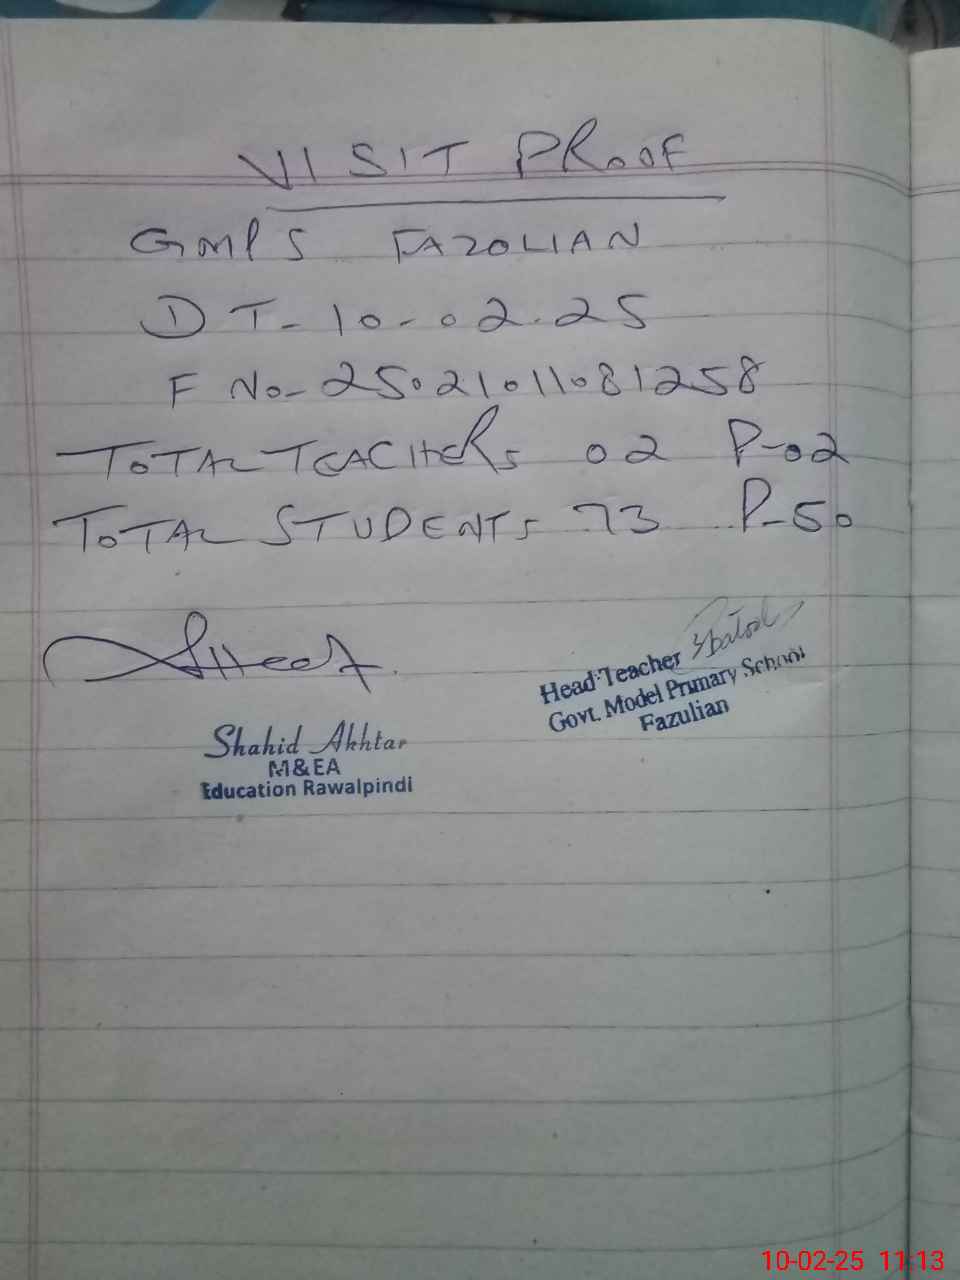 VISIT PROOF
GMPS FAZOLIAN
DT-10-02-25
F No-25021011081258
TOTAL TEACHERS 02 P-02
TOTAL STUDENTS 73 P-50
Shahid Akhtar
M&EA
Education Rawalpindi
Head Teacher
Govt. Model Primary School
Fazulian
10-02-25 11:13